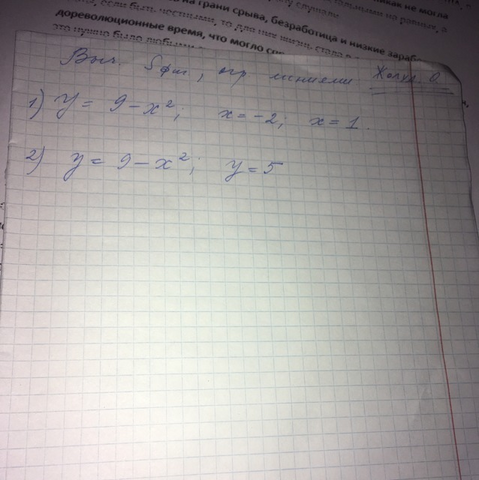 на грани срыва, безработица и низкие
если быть честными, то для них жизнь стала
дореволюционные время, что могло
это нужно было любыми
никак не могла
Выч. Sфиг, огр линиями
1) y = 9 - x²; x = -2; x = 1.
2) y = 9 - x²; y = 5